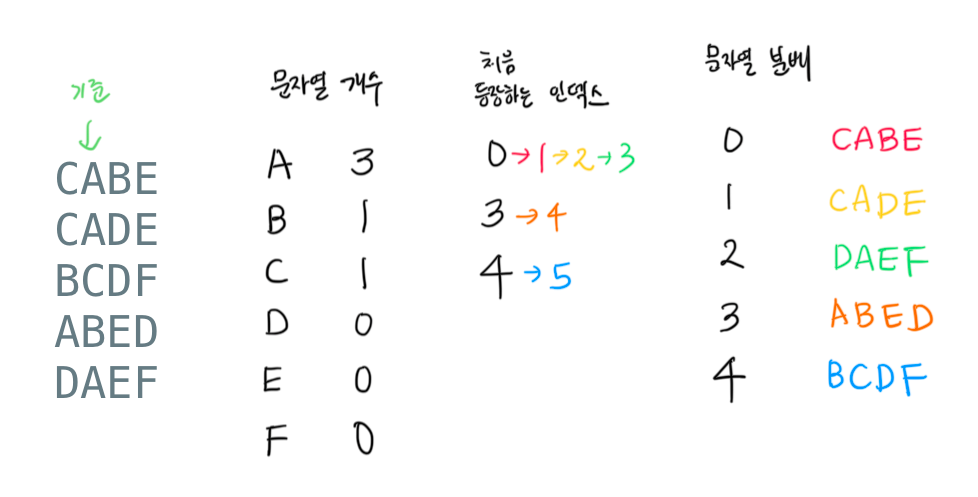 기준
↓
CABE
CADE
BCDF
ABED
DAEF
문자열 개수
A 3
B 1
C 1
D 0
E 0
F 0
처음
등장하는 인덱스
0→1→2→3
3→4
4→5
문자열 분배
0 CABE
1 CADE
2 DAEF
3 ABED
4 BCDF